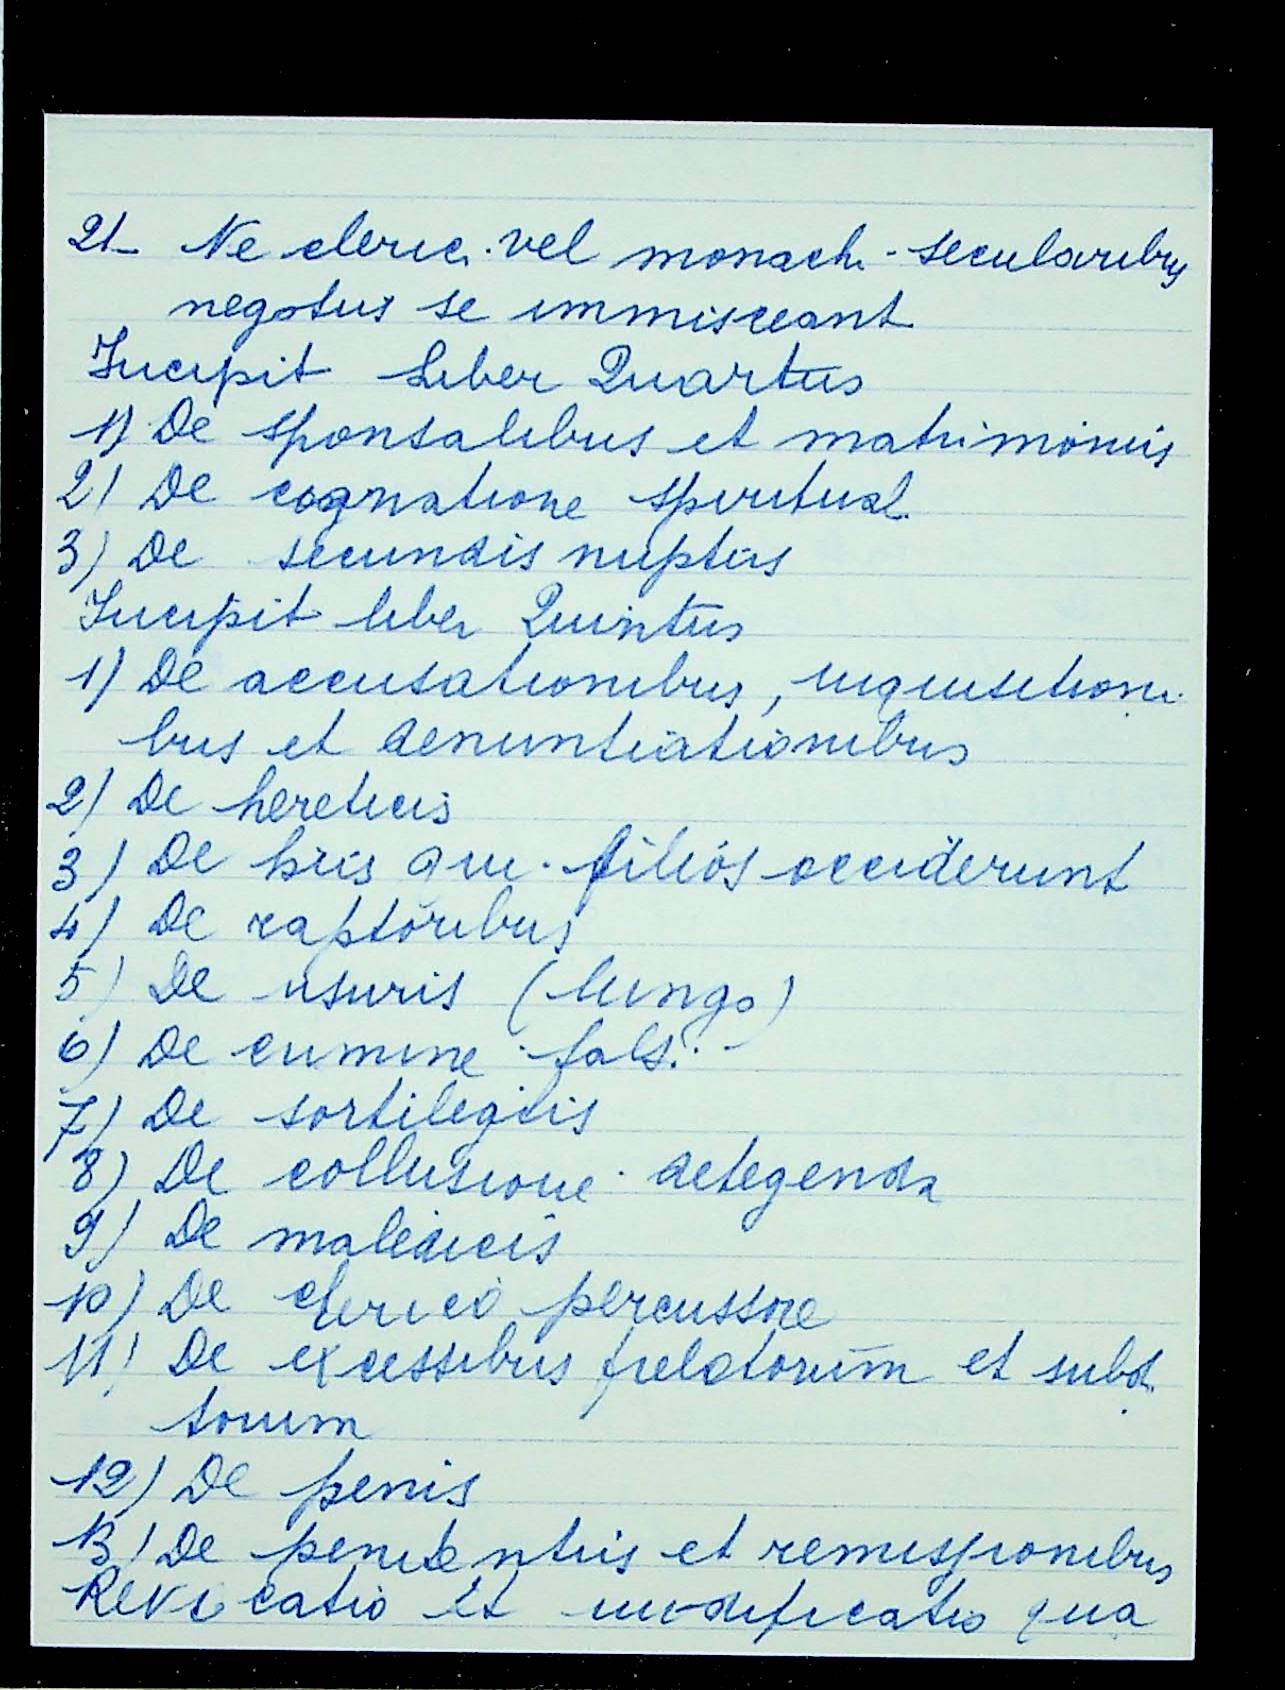 21- Ne cleric. vel monach. secularibus
negotiis se immisceant
Incipit Liber Quartus
1) De sponsalibus et matrimoniis
2) De cognatione spiritual.
3) De secundis nuptiis
Incipit liber Quintus
1) De accusationibus, inquisitioni-
bus et denuntiationibus
2) De hereticis
3) De hiis qui filios occiderunt
4) De raptoribus
5) De usuris (lungo)
6) De crimine fals.
7) De sortilegiis
8) De collusione detegenda
9) De maledicis
10) De clerico percussore
11) De excessibus prelatorum et subd.
torum
12) De penis
13) De penitentiis et remissionibus
Revocatio et modificatio qua